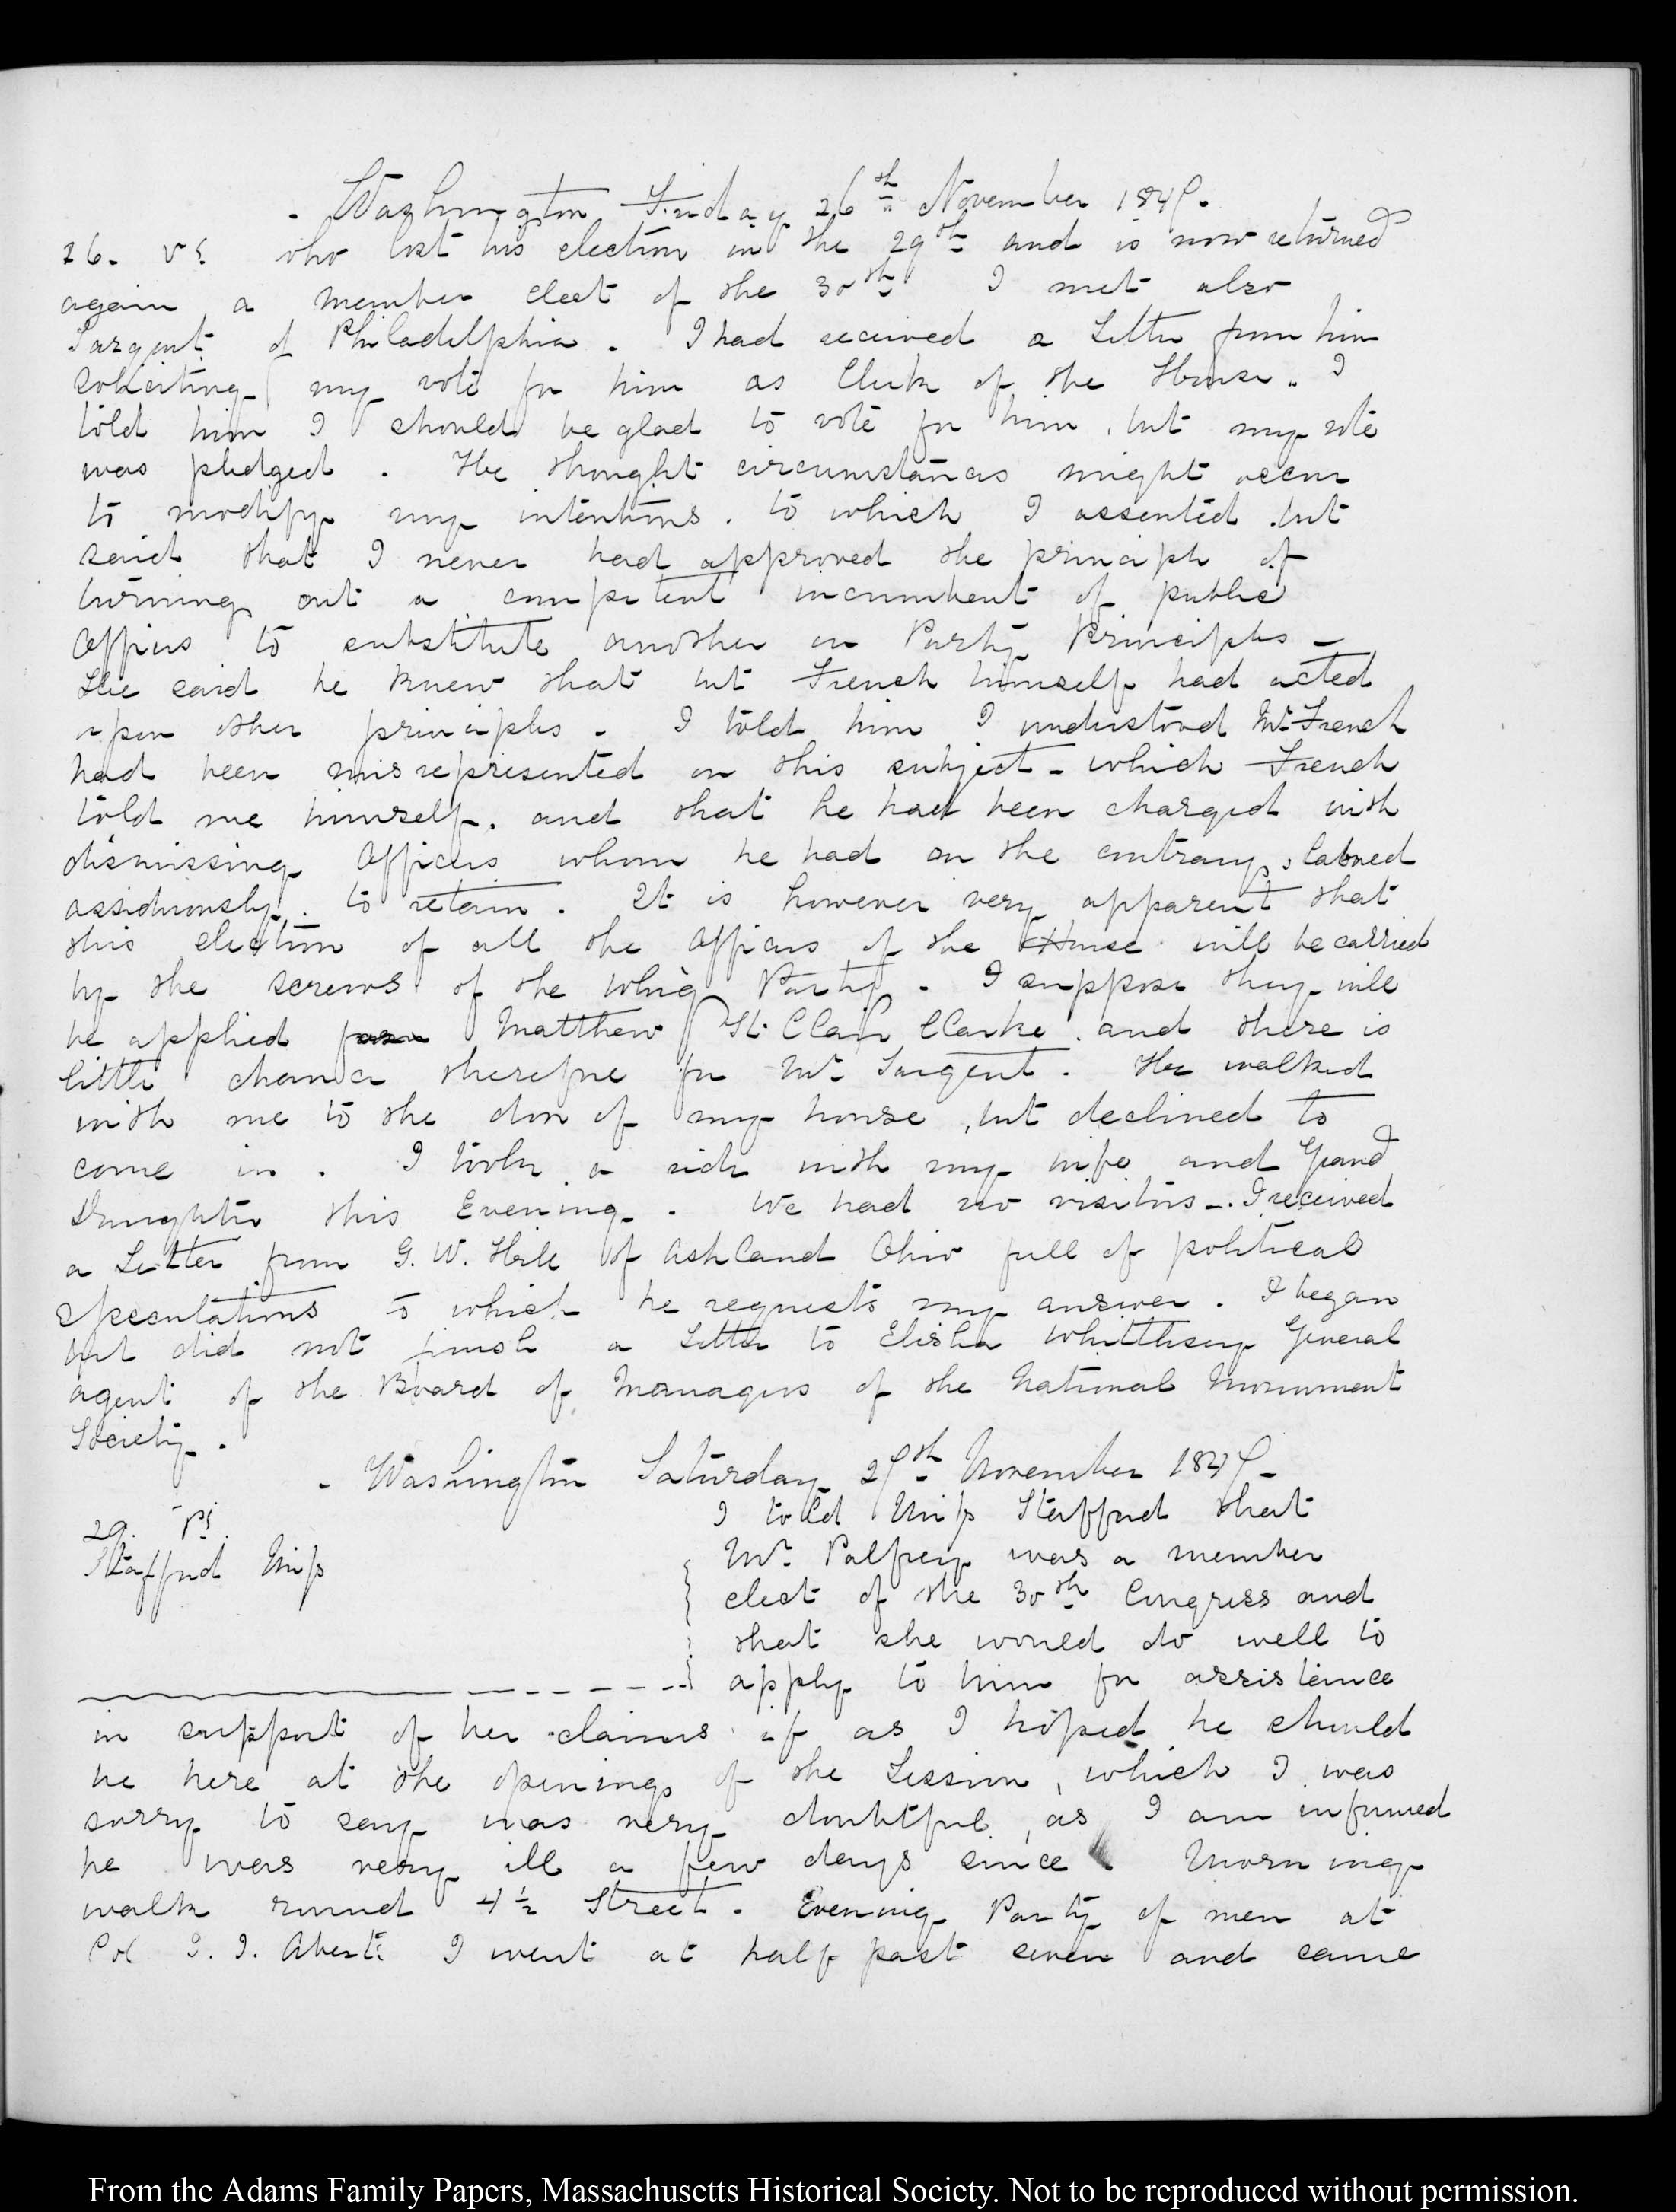 . Washington Friday 26th November 1847.
26. VI. who lost his election in the 29th and is now returned
again a member elect of the 30th I met also
Sargent of Philadelphia. I had received a Letter from him
soliciting my vote for him as Clerk of the House. I
told him I should be glad to vote for him, but my vote
was pledged. He thought circumstances might occur
to modify my intentions. to which I assented but
said that I never had approved the principle of
turning out a competent incumbent of public
Offices to substitute another on Party Principles -
He said he knew that but French himself had acted
upon other principles. I told him I understood Mr. French
had been misrepresented on this subject - which French
told me himself. and that he had been charged with
dismissing Officers whom he had on the contrary, labored
assiduously to retain. It is however very apparent that
this election of all the Officers of the House will be carried
by the screws of the Whig Party. I suppose they will
be applied for Matthew St. Clair Clarke. and there is
little chance therefore for Mr. Sargent. He walked
with me to the door of my house, but declined to
come in. I took a ride with my wife and Grand
Daughter this Evening. We had no visitors -. I received
a Letter from G. W. Hill of Ashland Ohio full of political
speculations to which he requests my answer. I began
but did not finish a Letter to Elisha Whittlesey General
agent of the Board of Managers of the National Monument
Society.
. Washington Saturday 27th November 1847 -
I told Miss Stafford that
Stafford Miss
Mr. Palfrey was a member
elect of the 30th Congress and
that she would do well to
apply to him for assistance
in support of her claims if as I hoped he should
be here at the opening of the Session, which I was
sorry to say was very doubtful, as I am informed
he was very ill a few days since. Morning
walk round 4½ Street. Evening Party of men at
Col J. J. Abert's I went at half past seven and came
From the Adams Family Papers, Massachusetts Historical Society. Not to be reproduced without permission.